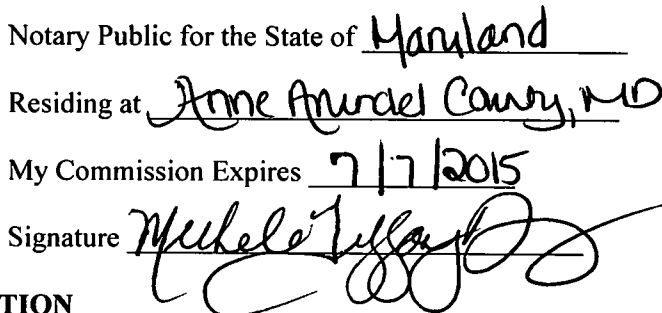 Notary Public for the State of Maryland
Residing at Anne Arundel County, MD
My Commission Expires 7/7/2015
Signature Michele
TION